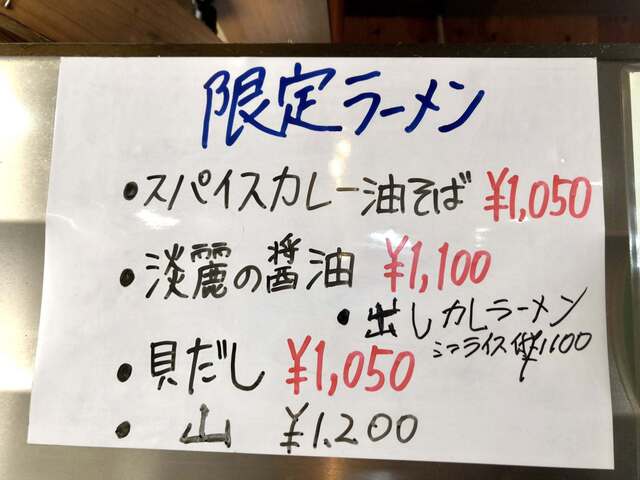 限定ラーメン
・スパイスカレー油そば ¥1,050
・淡麗の醤油 ¥1,100
・出しカレラーメン
ミニライス付¥1100
・貝だし ¥1,050
・山 ¥1,200